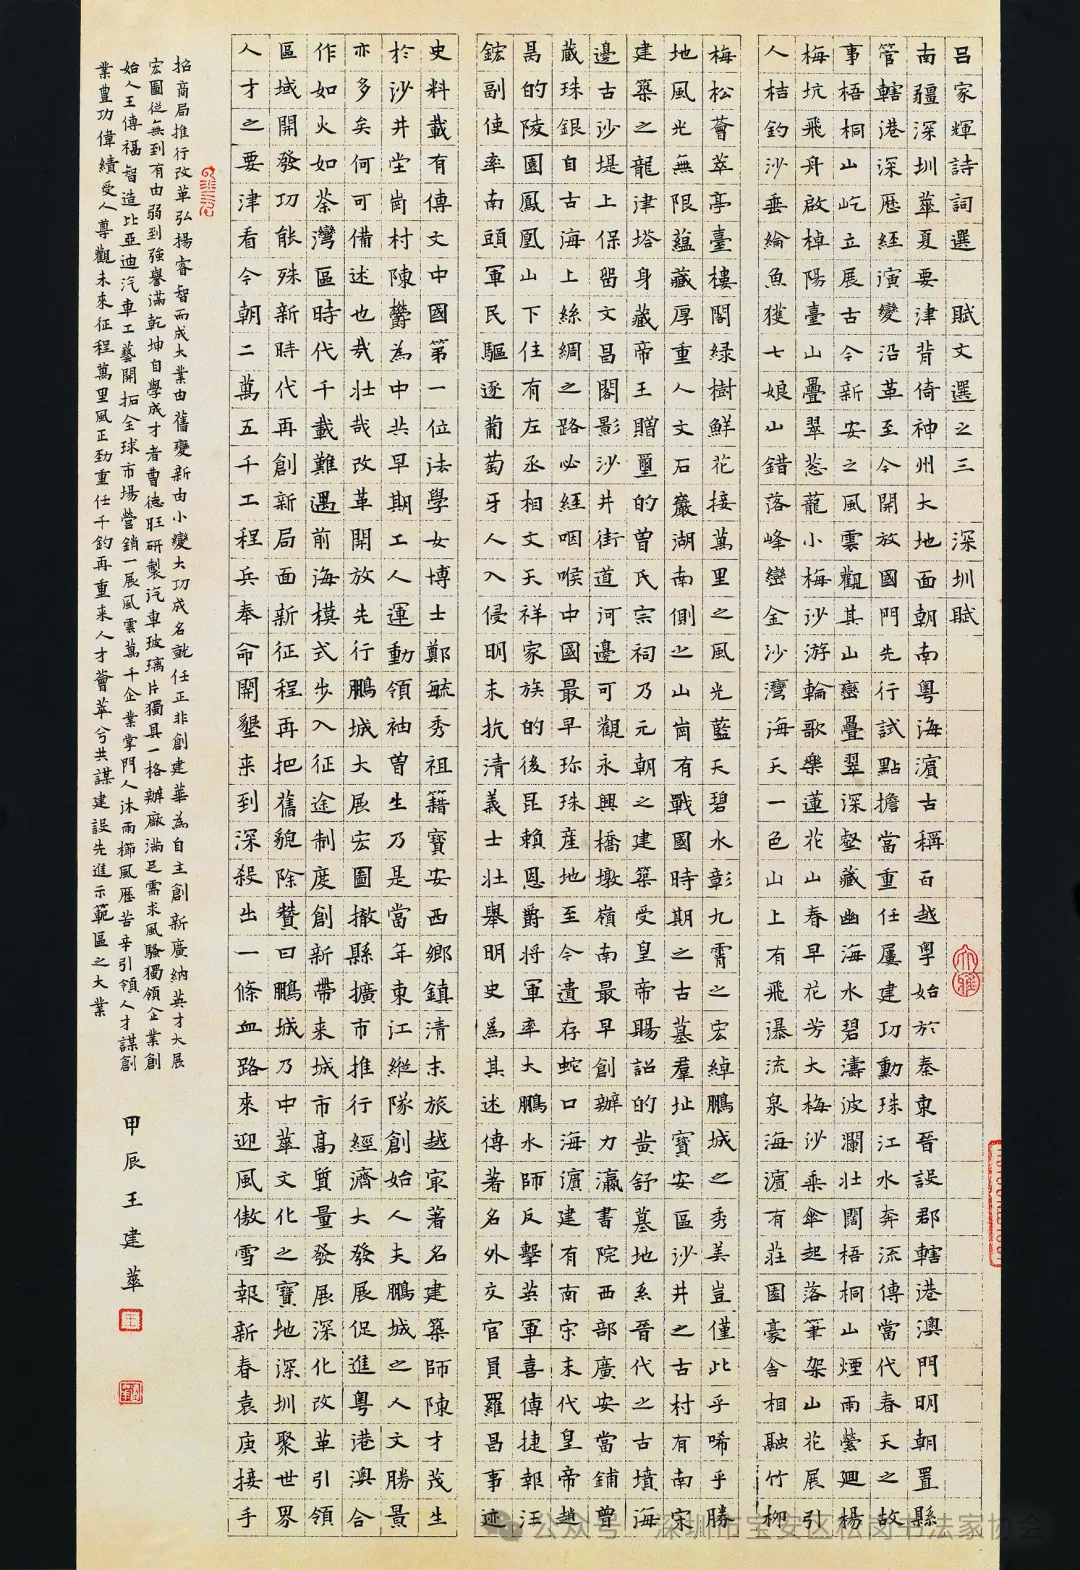 吕家輝詩詞選 賦文選之三 深圳賦
南疆深圳華夏要津背倚神州大地面朝南粵海濵古稱百越粵始於秦東晉設郡轄港澳門明朝置縣
管轄港深歷經演變沿革至今開放國門先行試點擔當重任屢建功勳珠江水奔流傳當代春天之故
事梧桐山屹立展古今新安之風雲觀其山巒疊翠深壑藏幽海水碧濤波瀾壯闊梧桐山煙雨縈廻楊
梅坑飛舟啟棹陽臺山疊翠葱蘢小梅沙游輪歌樂蓮花山春早花芳大梅沙乘傘起落筆架山花展引
人桔釣沙垂綸魚獲七娘山錯落峰巒金沙灣海天一色山上有飛瀑流泉海濵有莊園豪舍相融竹柳
梅松薈萃亭臺樓閣緑樹鮮花接萬里之風光藍天碧水彰九霄之宏綽鵬城之秀美豈僅此乎唏乎勝
地風光無限蘊藏厚重人文石巖湖南側之山崗有戰國時期之古墓羣址寶安區沙井之古村有南宋
建築之龍津塔身藏帝王贈璽的曾氏宗祠乃元朝之建築受皇帝賜詔的黄舒墓地系晉代之古墳海
邊古沙堤上保留文昌閣影沙井街道河邊可觀永興橋墩嶺南最早創辦力瀛書院西部廣安當鋪曾
藏珠銀自古海上絲綢之路必經咽喉中國最早珎珠産地至今遺存蛇口海濵建有南宋末代皇帝趙
昺的陵園鳳凰山下住有左丞相文天祥家族的後昆賴恩爵将軍率大鵬水師反擊英軍喜傳捷報汪
鋐副使率南頭軍民驅逐葡萄牙人入侵明末抗清義士壯舉明史爲其述傳著名外交官員羅昌事迹
史料載有傳文中國第一位法學女博士鄭毓秀祖籍寳安西鄉鎮清末旅越家著名建築師陳才茂生
於沙井堂崗村陳鬱為中共早期工人運動領袖曽生乃是當年東江縱隊創始人夫鵬城之人文勝景
亦多矣何可備述也哉壯哉改革開放先行鵬城大展宏圖撤縣擴市推行經濟大發展促進粵港澳合
作如火如荼灣區時代千載難遇前海模式步入征途制度創新帶來城市高質量發展深化改革引領
區域開發功能殊新時代再創新局面新征程再把舊貌除贊曰鵬城乃中華文化之寶地深圳聚世界
人才之要津看今朝二萬五千工程兵奉命開墾来到深圳殺出一條血路來迎風傲雪報新春袁庚接手
招商局推行改革弘揚睿智而成大業由舊變新由小變大功成名就任正非創建華為自主創新廣納英才大展
宏圖従無到有由弱到強譽滿乾坤自學成才者曹德旺研製汽車玻璃片獨具一格辦廠滿足需求風騷獨領企業創
始人王傳福智造比亞迪汽車工藝開拓全球市場營銷一展風雲萬千企業掌門人沐雨櫛風歷苦辛引領人才謀創
業豊功偉績受人尊觀未來征程萬里風正劲重任千鈞再重来人才薈萃兮共謀建設先進示範區之大業
甲辰王建華
公众号 深圳市宝安区松岗书法家协会